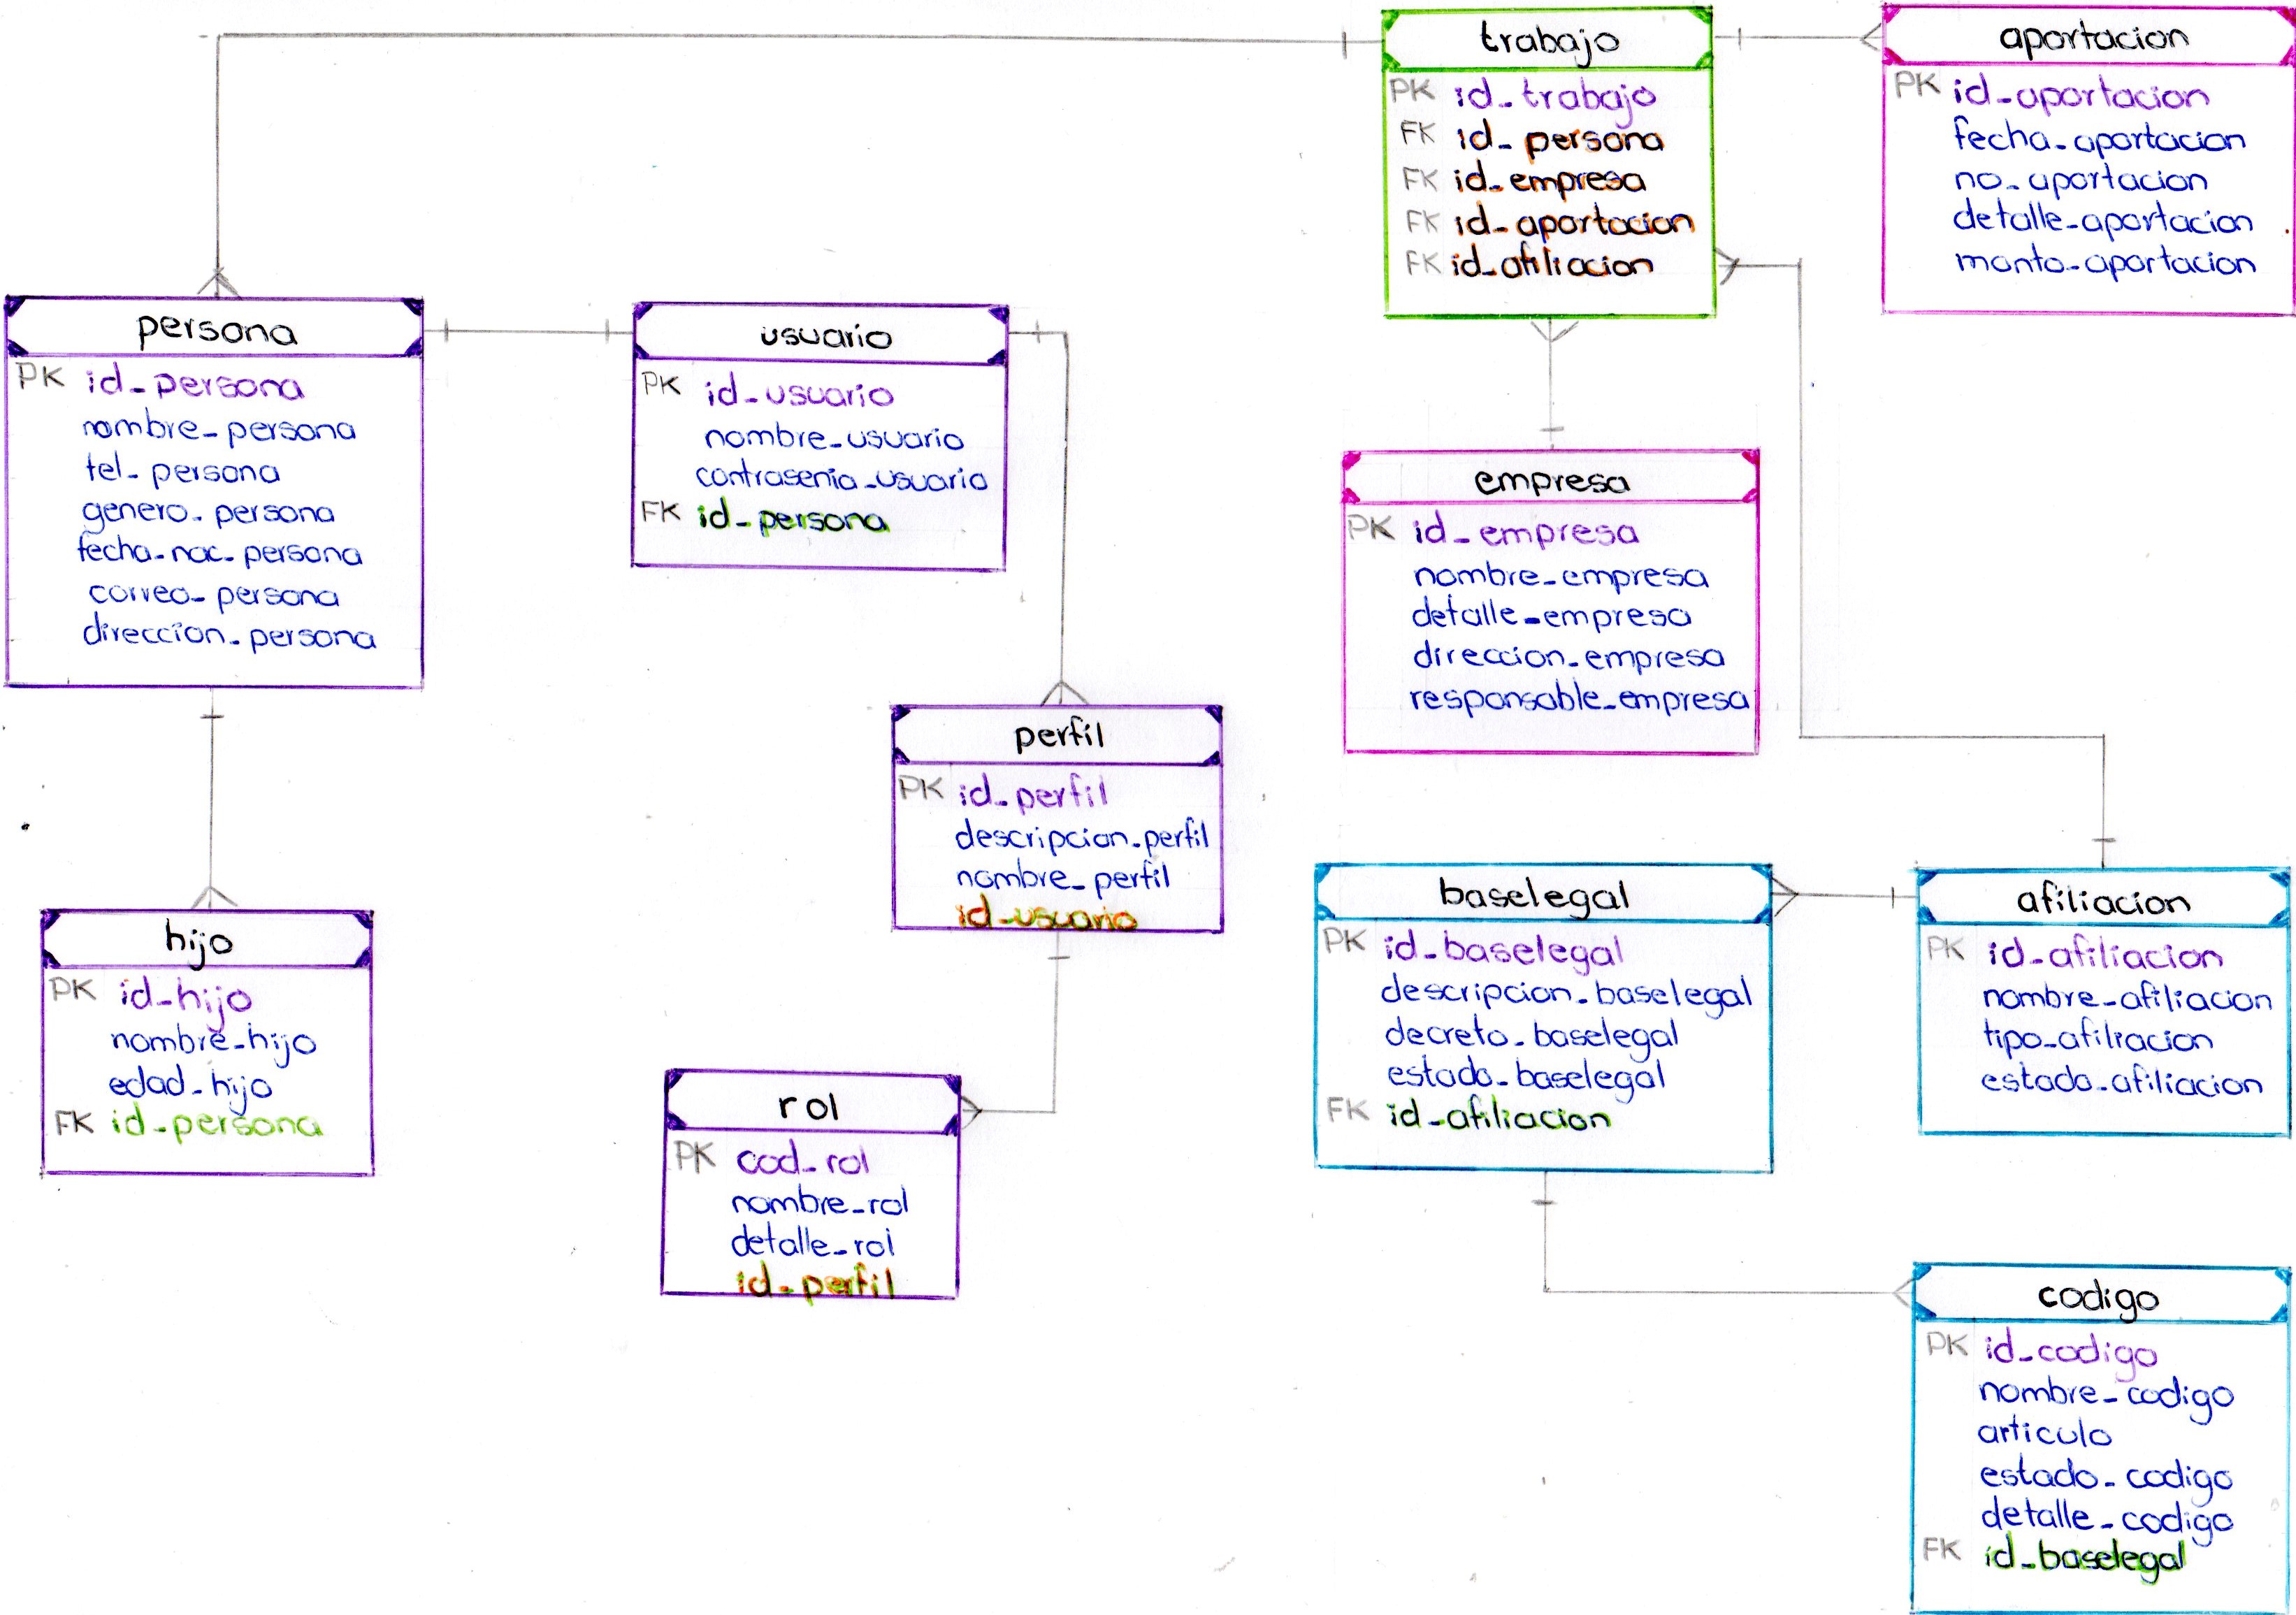 trabajo
PK id_trabajo
FK id_persona
FK id_empresa
FK id_aportacion
FK id_afiliacion
aportacion
PK id_aportacion
fecha_aportacion
no_aportacion
detalle_aportacion
monto_aportacion
persona
PK id_persona
nombre_persona
tel_persona
genero_persona
fecha_nac_persona
correo_persona
direccion_persona
usuario
PK id_usuario
nombre_usuario
contrasenia_usuario
FK id_persona
empresa
PK id_empresa
nombre_empresa
detalle_empresa
direccion_empresa
responsable_empresa
perfil
PK id_perfil
descripcion_perfil
nombre_perfil
id_usuario
hijo
PK id_hijo
nombre_hijo
edad_hijo
FK id_persona
rol
PK cod_rol
nombre_rol
detalle_rol
id_perfil
baselegal
PK id_baselegal
descripcion_baselegal
decreto_baselegal
estado_baselegal
FK id_afiliacion
afiliacion
PK id_afiliacion
nombre_afiliacion
tipo_afiliacion
estado_afiliacion
codigo
PK id_codigo
nombre_codigo
articulo
estado_codigo
detalle_codigo
FK id_baselegal